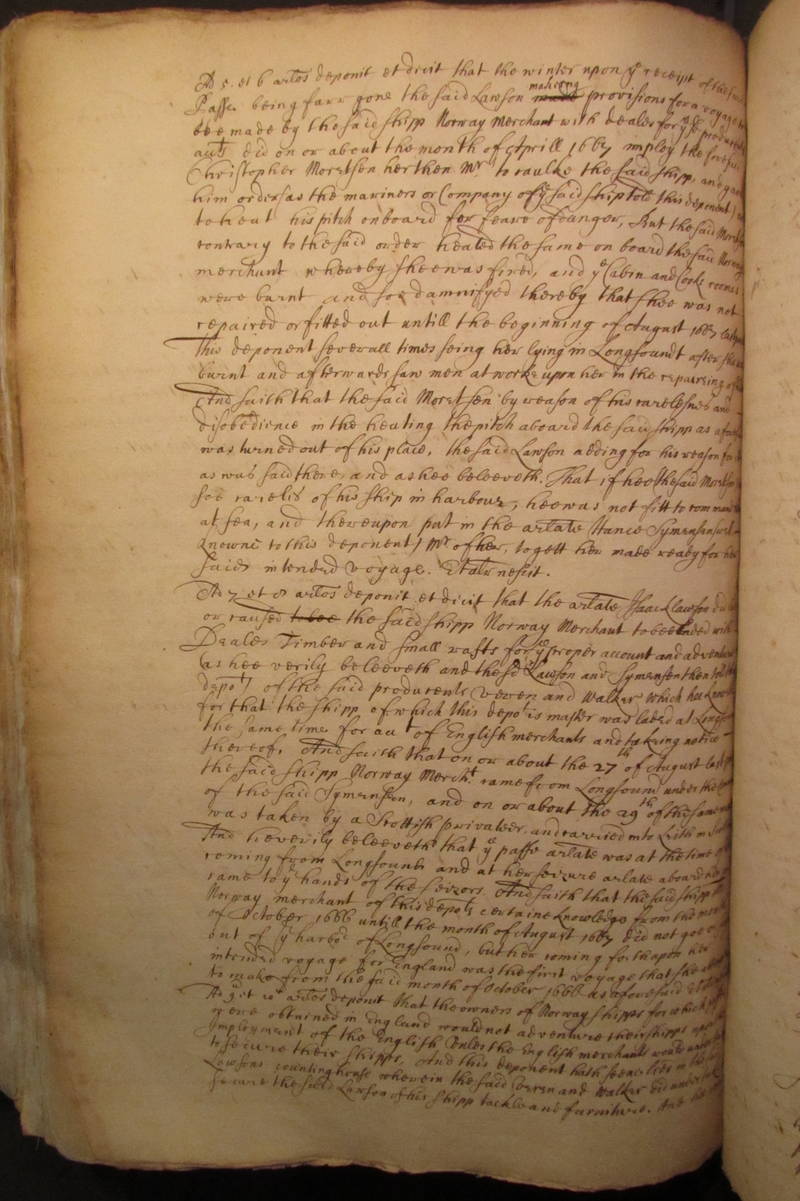 Ad 5. et 6 artos deponit et dicit that the winter upon ye receipt of the said
Passe being farr gone the said Lawson makeing provisions for a voyage to
bee made by the said shipp Norway Merchant with deales for ye
acct did on or about the month of Aprill 1667 imploy the foresaid
Christopher Moretsen her then Mr to caulke the said shipp, and gave
him orders as the mariners or Company of ye said ship told this deponent,
to heat his pitch onboard for feare of danger, But the said
contrary to the said order heated the same on board the said Norway
merchant whereby shee was fired, and ye Cabin and Cooke roomes
were burnt and soe damnifyed thereby that shee was not
repaired or fitted out untill the beginning of August 1667 last
This deponent severall times seing her lying in Longsound after
burnt and afterwards saw men at worke upon her in the repaireing of
And saith that the said Moretsen by reason of his carelesnes and
disobedience in the heating the pitch aboard the said shipp as
was turned out of his place, the said Lawson adding for his reason
as was said there, and as hee beleeveth. That if hee the said Moretsen
soe careles of his ship in harbour, hee was not fitt to command
at sea, and thereupon put in the arlate Hance Symensen well
knowne to this deponent) Mr of her, to gett her made ready for her
said intended voyage. Et alr nescit.
Ad 7 et 8 artos deponit et dicit that the arlate Isaac Lawson did
or caused to bee the said shipp Norway Merchant to bee laded with
Deales Timber and small masts for ye proper account and adventure
as hee verily beleeveth and the sd Lawson and Symensen then told this
depot) of the said producents Veren and Walker which hee knoweth
for that the shipp of which this depot is master was laded at Longsound
the same time for acct of English merchants and takeing notice
thereof. And saith that on or about the 27th of August last
the said shipp Norway Mercht came from Longsound under the
of the said Symensen, and on or about the 29th of the same
was taken by a Scottish privateer, and carried into Leith
And hee verily beleeveth that ye passe arlate was at the time of
coming from Longsound and at her seizure arlate aboard
came to ye hands of the seizors. And saith that the said shipp
Norway merchant of this depots certaine knowledge from the month
of October 1666 untill the month of August 1667 did not goe
out of ye harbor of Longsound, but her coming forth upon her
intended voyage for England was the first voyage that shee
to make from the said month of October 1666 as aforesaid
Ad 9 et 10 artos deponit that the owners of Norway shipps for which
were obtained in England would not adventure their shipps upon
Imployment of the English unles the English merchants would
to secure their shipps, And this deponent hath seene
Lawsons counting house wherein the said Veren and Walker did
secure the said Lawson of his shipp tackle and furniture. And